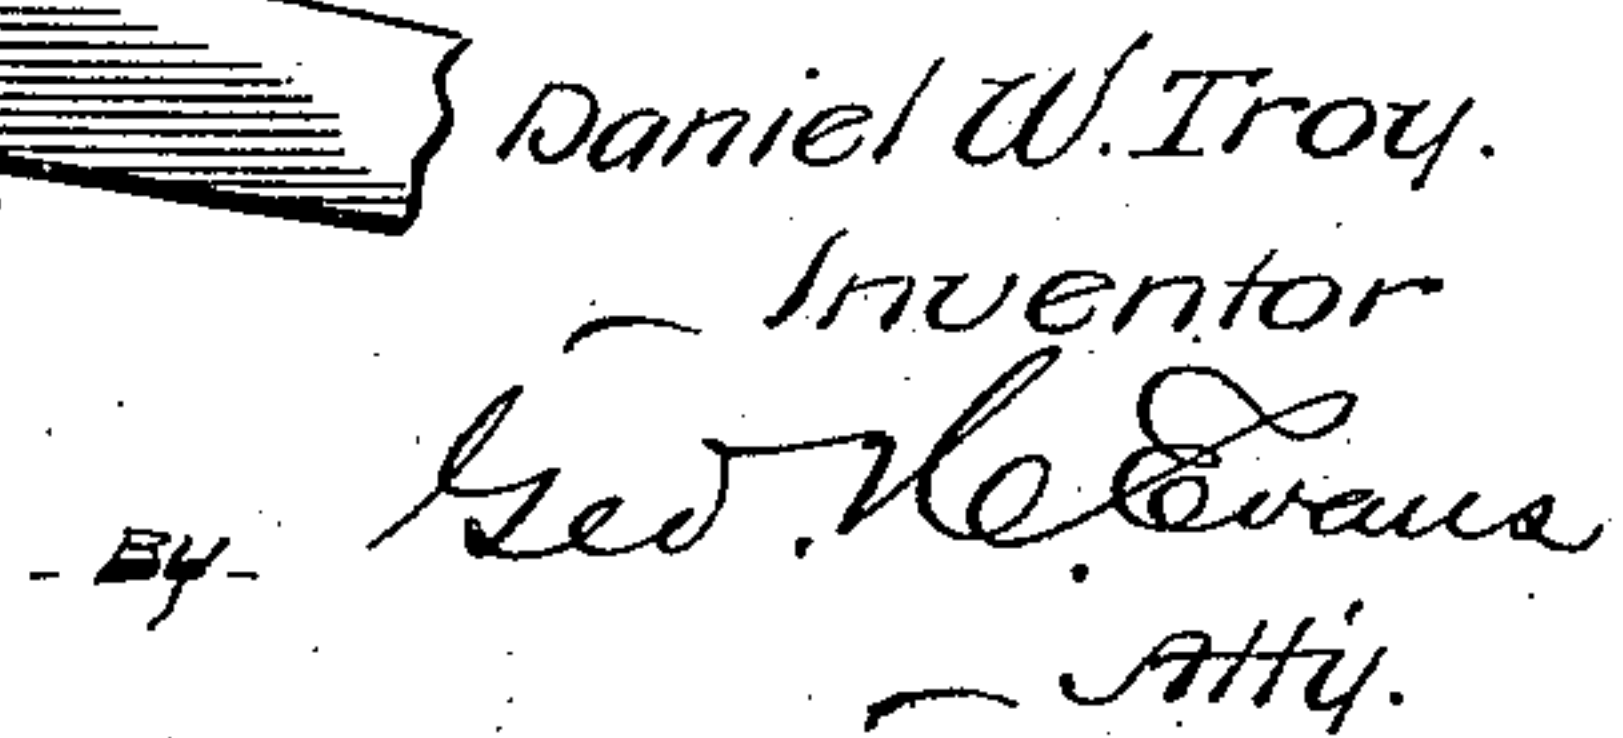 Daniel W. Troy.
Inventor
-By- Geo. H. Evans
Att'y.